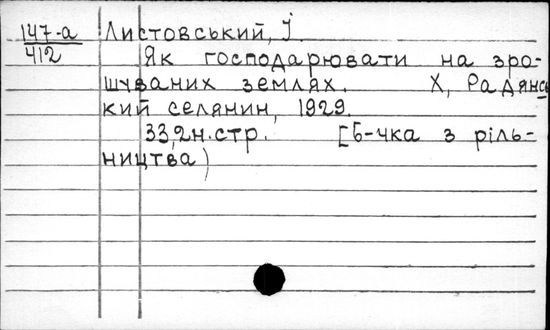 147-а Листовський, І.
412
Як господарювати на зро-
шуваних землях. Х, Радянсь
кий селянин, 1929.
33,2н.стр. [Б-чка з ріль-
ництва)